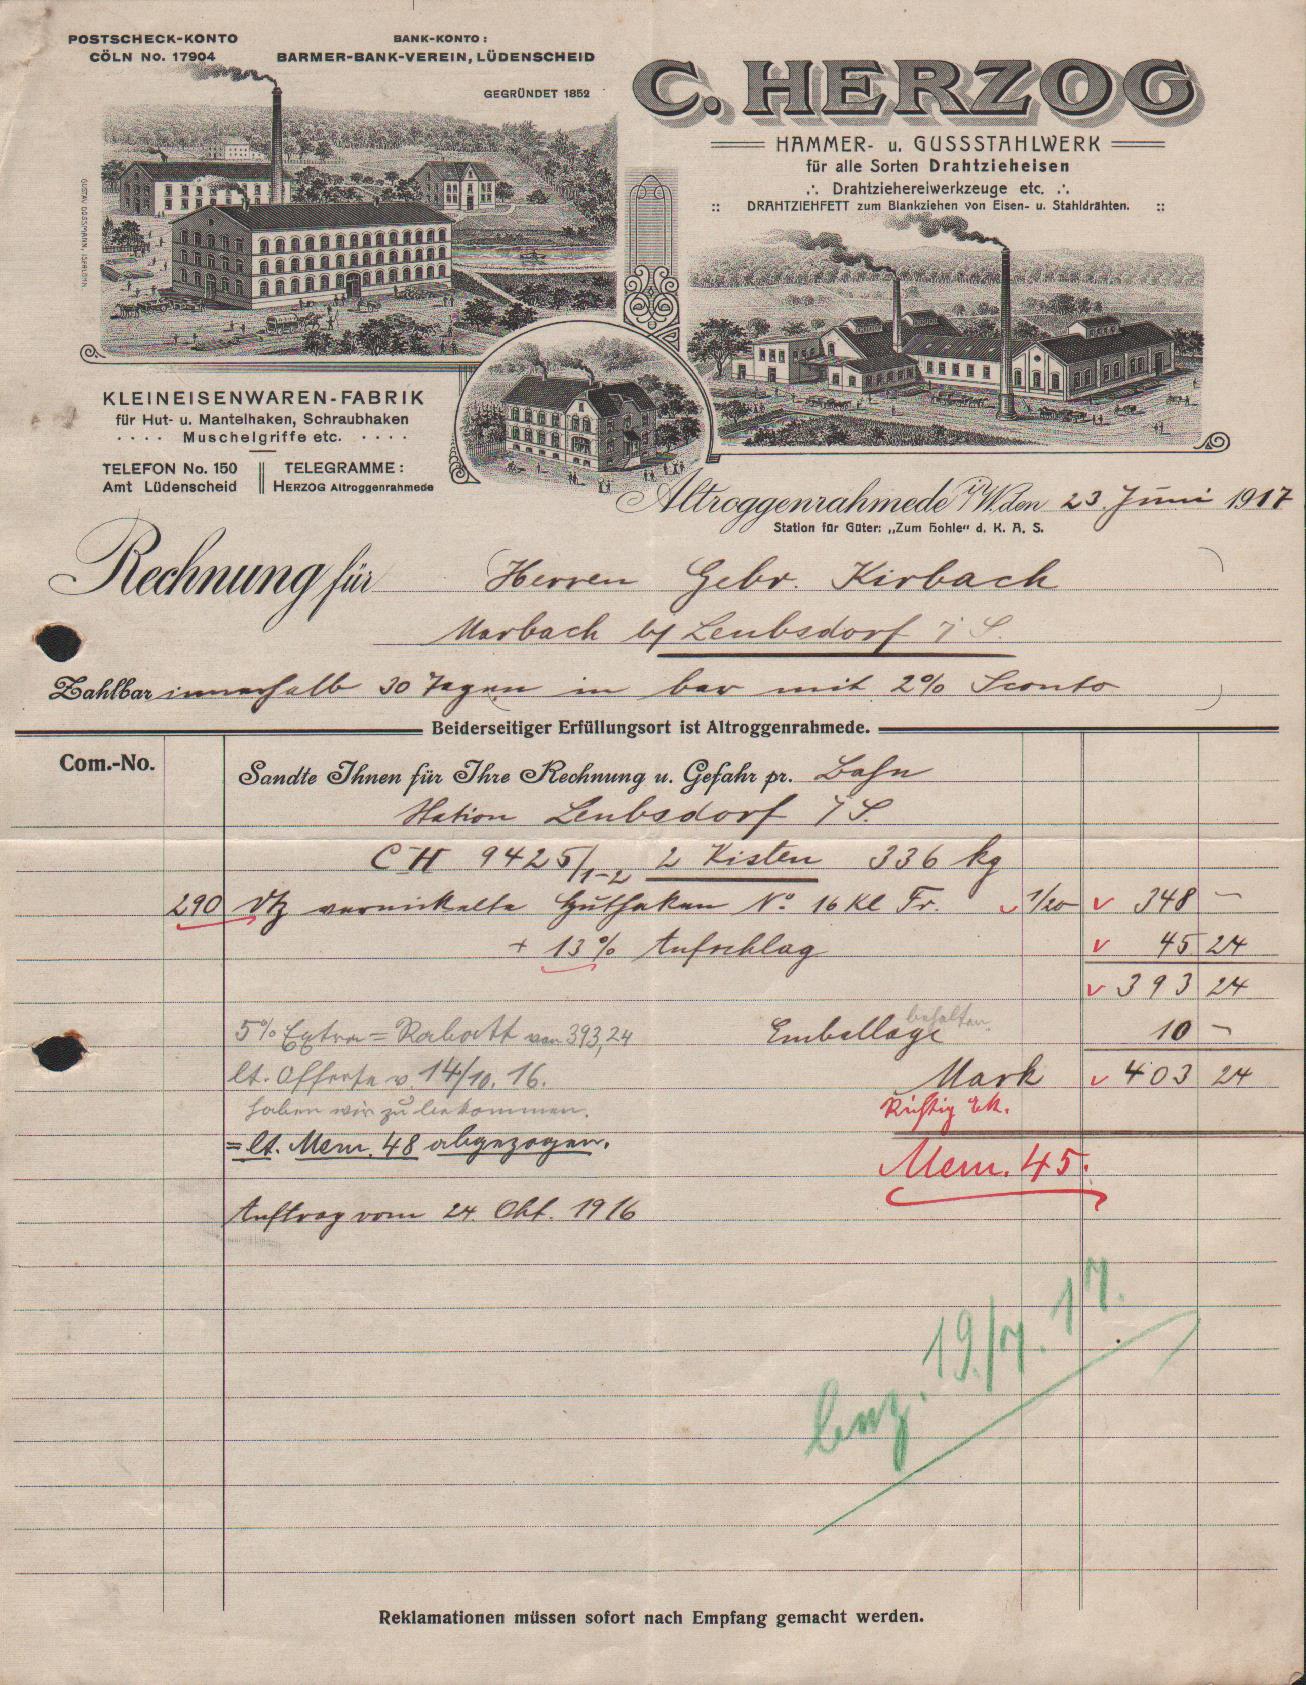 POSTSCHECK-KONTO
CÖLN No. 17904
BANK-KONTO:
BARMER-BANK-VEREIN, LÜDENSCHEID
GEGRÜNDET 1852
C. HERZOG
HAMMER- u. GUSSSTAHLWERK
für alle Sorten Drahtzieheisen
∴ Drahtziehereiwerkzeuge etc. ∴
:: DRAHTZIEHFETT zum Blankziehen von Eisen- u. Stahldrähten. ::
GUSTAV DOSSMANN, ISERLOHN.
KLEINEISENWAREN-FABRIK
für Hut- u. Mantelhaken, Schraubhaken
· · · · Muschelgriffe etc. · · · ·
TELEFON No. 150
Amt Lüdenscheid
TELEGRAMME:
HERZOG Altroggenrahmede
Altroggenrahmede i/W. den 23. Juni 1917
Station für Güter: „Zum Hohle" d. K. A. S.
Rechnung für Herren Gebr. Kirbach
Marbach b/ Leubsdorf i/ S.
Zahlbar innerhalb 30 Tagen in bar mit 2% Sconto
Beiderseitiger Erfüllungsort ist Altroggenrahmede.
Com.-No.
Sandte Ihnen für Ihre Rechnung u. Gefahr pr. Bahn
Station Leubsdorf i/ S.
CH 9425/1-2 2 Kisten 336 kg
290 Dtz vernickelte Huthaken No 16 Kl Fr. 1/20 348 –
+ 13% Aufschlag 45 24
393 24
behalten
Emballage 10 –
Mark 403 24
5% Extra = Rabatt von 393,24
lt. Offerte v. 14/10. 16.
haben wir zu bekommen.
= lt. Mem. 48 abgezogen.
Richtig
Mem. 45.
Auftrag vom 24. Okt. 1916
19/7. 17.
Reklamationen müssen sofort nach Empfang gemacht werden.